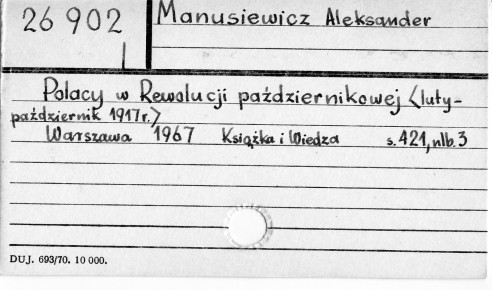 26 902
Manusiewicz Aleksander
Polacy w Rewolucji październikowej <luty-
październik 1917r.>
Warszawa 1967 Książka i Wiedza s. 421, nlb. 3
DUJ. 693/70. 10 000.